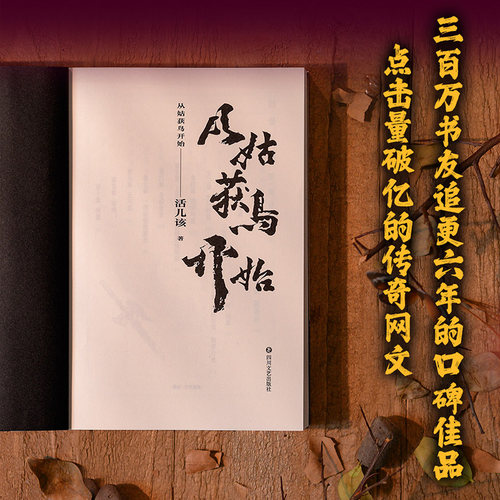 三百万书友追更六年的口碑佳品
点击量破亿的传奇网文
从姑
获鸟
开始
从姑获鸟开始——活儿该 著
四川文艺出版社